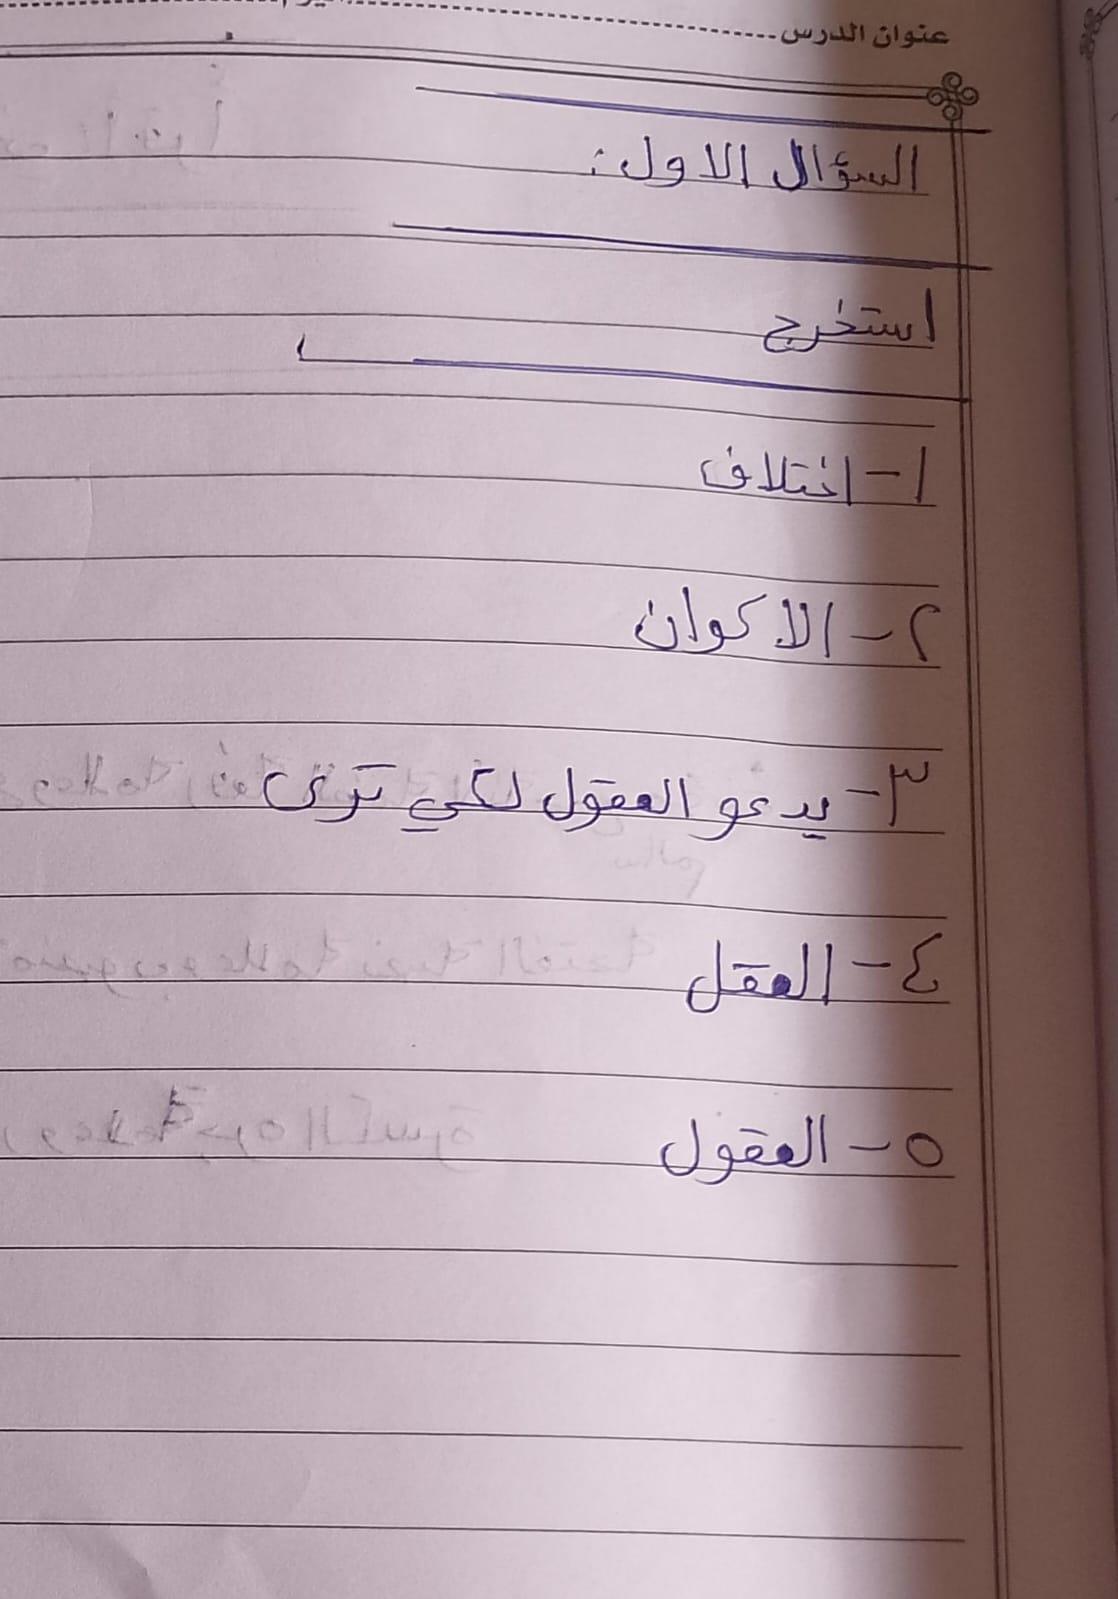 عنوان الدرس
السؤال الاول:
استخرج
١- اختلاف
٢- الاكوان
٣- يدعو العقول لكي ترى
٤- العقل
٥- العقول